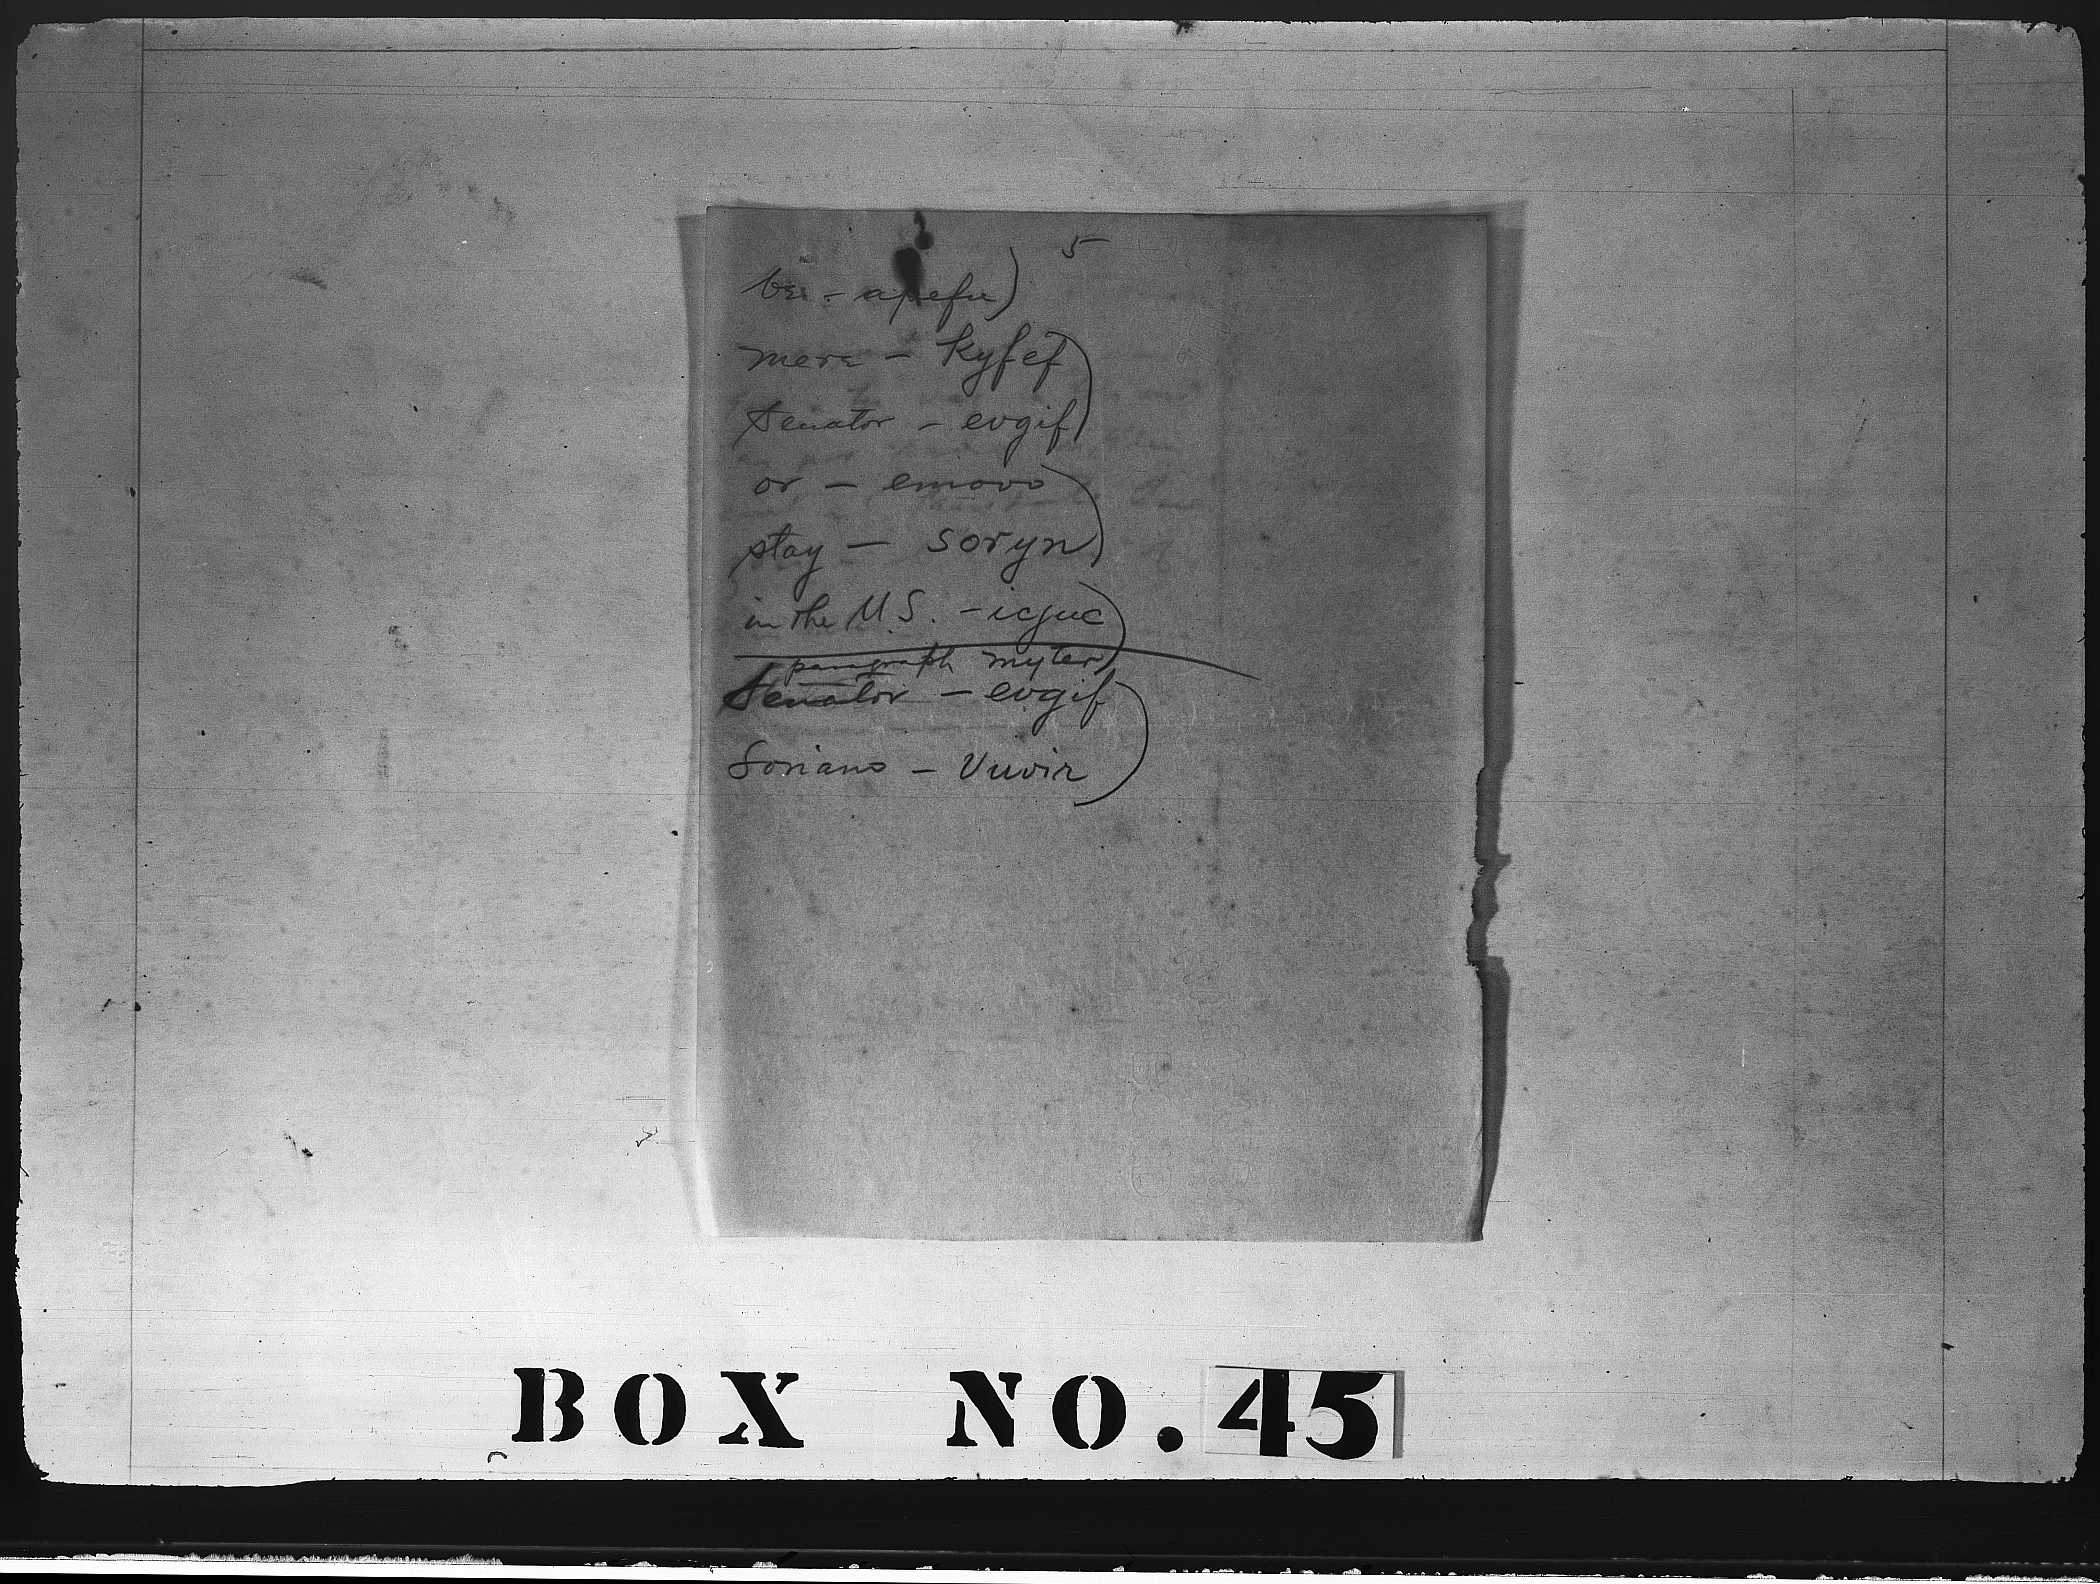 5
be - apefu)
mere - kyfef)
Senator - evgif)
or - emovo)
stay - soryn)
in the U.S. - icjuc)
paragraph myter)
Senator - evgif)
Soriano - Vuvir)
BOX NO. 45